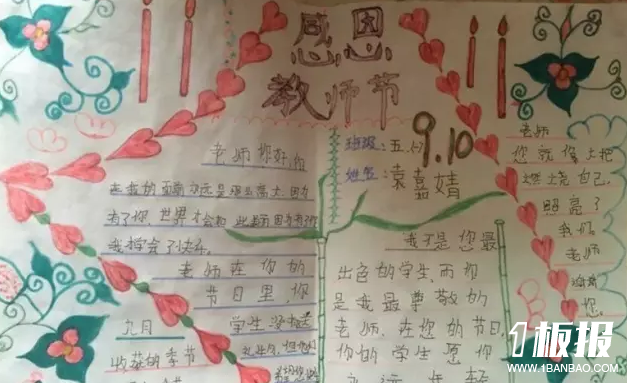 感恩
教师节
9.10
班级:五(一)
姓名:袁嘉婧
老师你好,你
在我的
有了你 世界才会如此美丽因为有了你
我学会了快乐
老师在你的
节日里,你
九月
学生没
收获的季节
我不是您最
出色的学生,而你
是我最尊敬的
老师,在您的节日,
你的学生愿你
永远年轻
老师
您就像火把
燃烧自己
照亮了
我们
老师
您
1板报
WWW.1BANBAO.COM